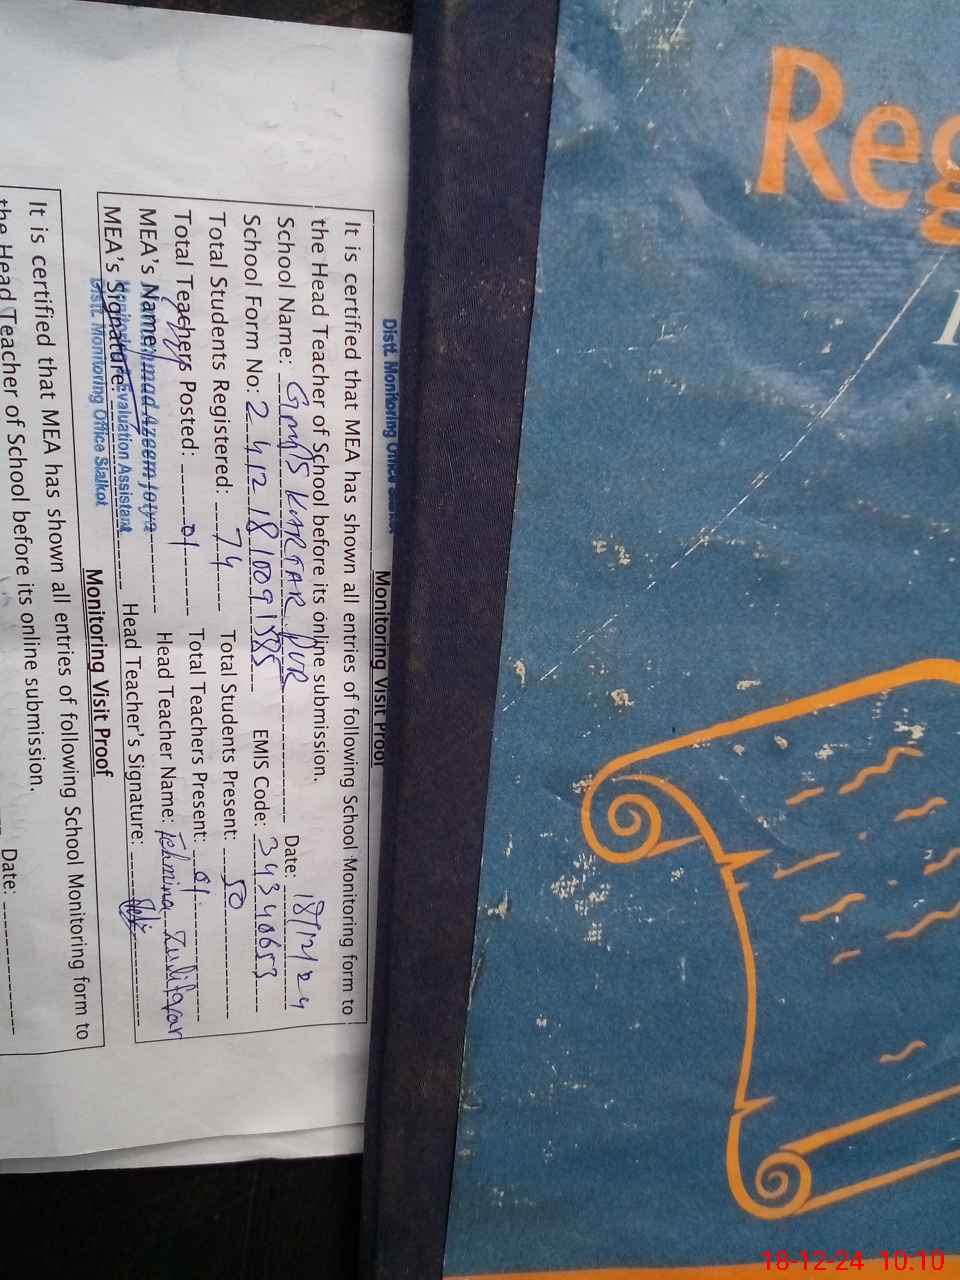 Distt. Monitoring Office
Monitoring Visit Proof
It is certified that MEA has shown all entries of following School Monitoring form to
the Head Teacher of School before its online submission.
School Name: GMPS KARTAR PUR Date: 18/12/24
School Form No: 2412181009 EMIS Code: 34340653
Total Students Registered: 74 Total Students Present: 50
Total Teachers Posted: 01 Total Teachers Present: 01
MEA's Name: Head Teacher Name: Tehmina Zulifqar
MEA's Signature: Head Teacher's Signature:
Evaluation Assistant
Distt. Monitoring Office Sialkot
Monitoring Visit Proof
It is certified that MEA has shown all entries of following School Monitoring form to
the Head Teacher of School before its online submission.
Date:
Reg
18-12-24 10:10